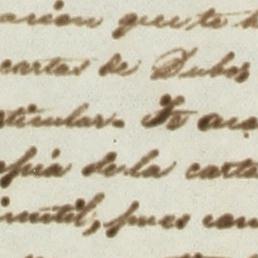 que te
cartas de Dubos
ticular. Te aco
opia de la carta
inutil, pues con